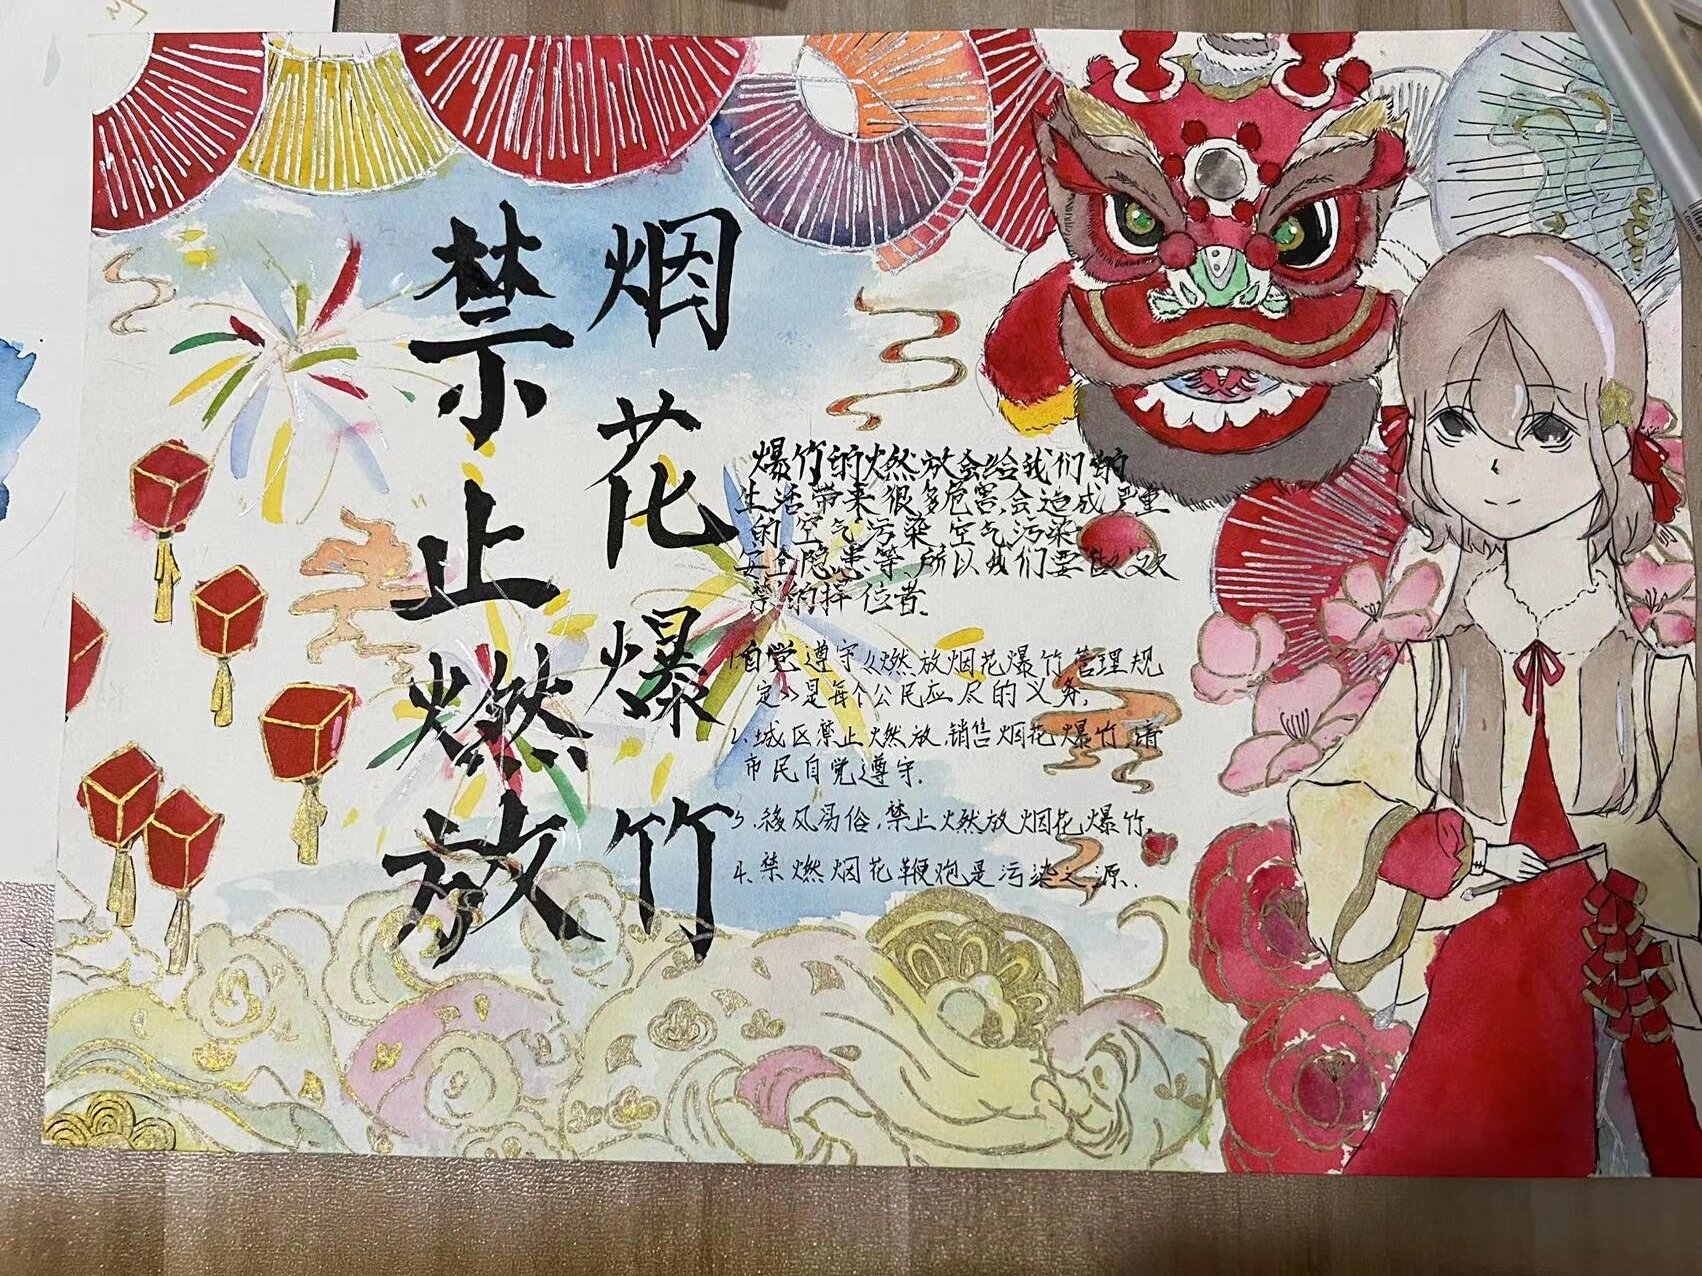 禁止燃放
烟花爆竹
爆竹的燃放会给我们的
生活带来很多危害,会造成严重
的空气污染 空气污染
安全隐患等,所以我们要做文
禁的捍位者.
1自觉遵守《燃放烟花爆竹管理规
定》是每个公民应尽的义务,
2.城区禁止燃放,销售烟花爆竹,请
市民自觉遵守.
3.移风易俗,禁止燃放烟花爆竹,
4.禁燃烟花鞭炮是污染之源.